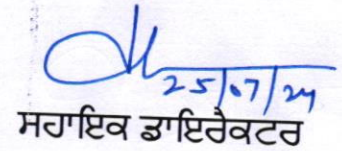 25/07/24
ਸਹਾਇਕ ਡਾਇਰੈਕਟਰ